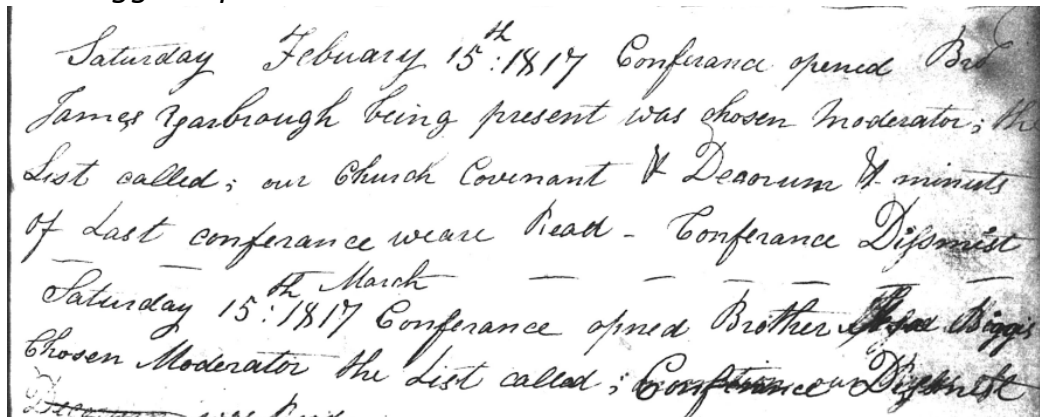 Saturday Febuary 15th: 1817 Conferance opened Bro
James Yarbrough being present was chosen Moderator; the
List called; our Church Covenant & Decorum & minuts
of Last conferance weare Read - Conferance Dissmist
March
Saturday 15th: 1817 Conferance opned Brother Biggs
Chosen Moderator the List called; our
was Read